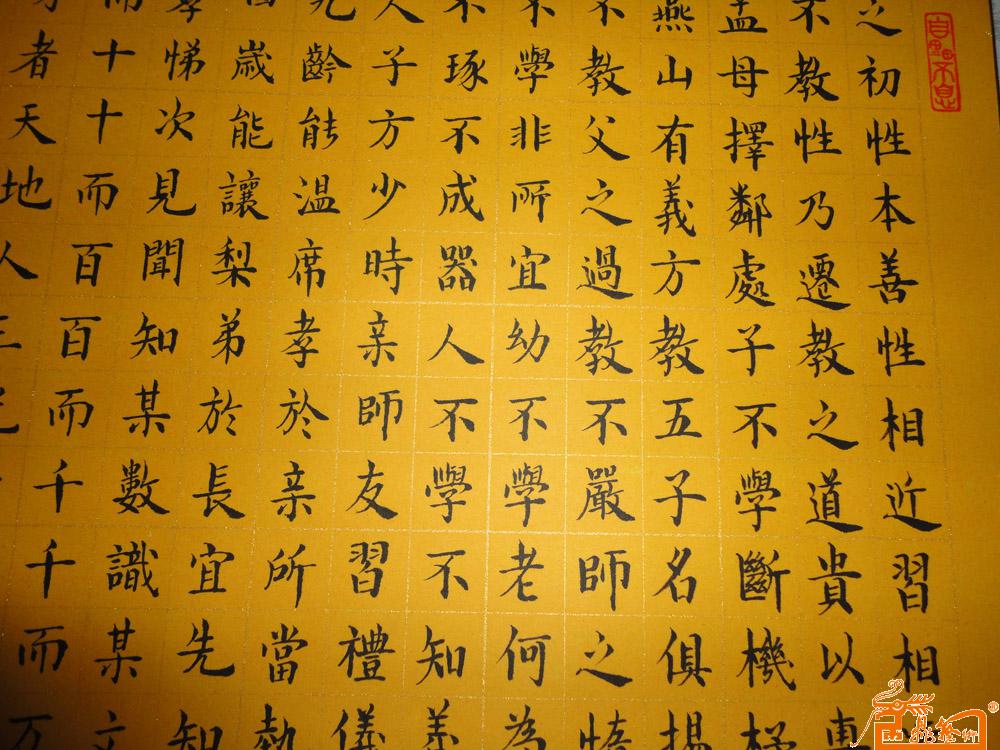 之初性本善性相近習相
不教性乃遷教之道貴以專
孟母擇鄰處子不學斷機杼
燕山有義方教五子名俱揚
不教父之過教不嚴師之惰
不學非所宜幼不學老何為
不琢不成器人不學不知義
人子方少時亲師友習禮儀
九齡能温席孝於亲所當執
四歲能讓梨弟於長宜先知
孝悌次見聞知某數識某文
而十十而百百而千千而万
者天地人三